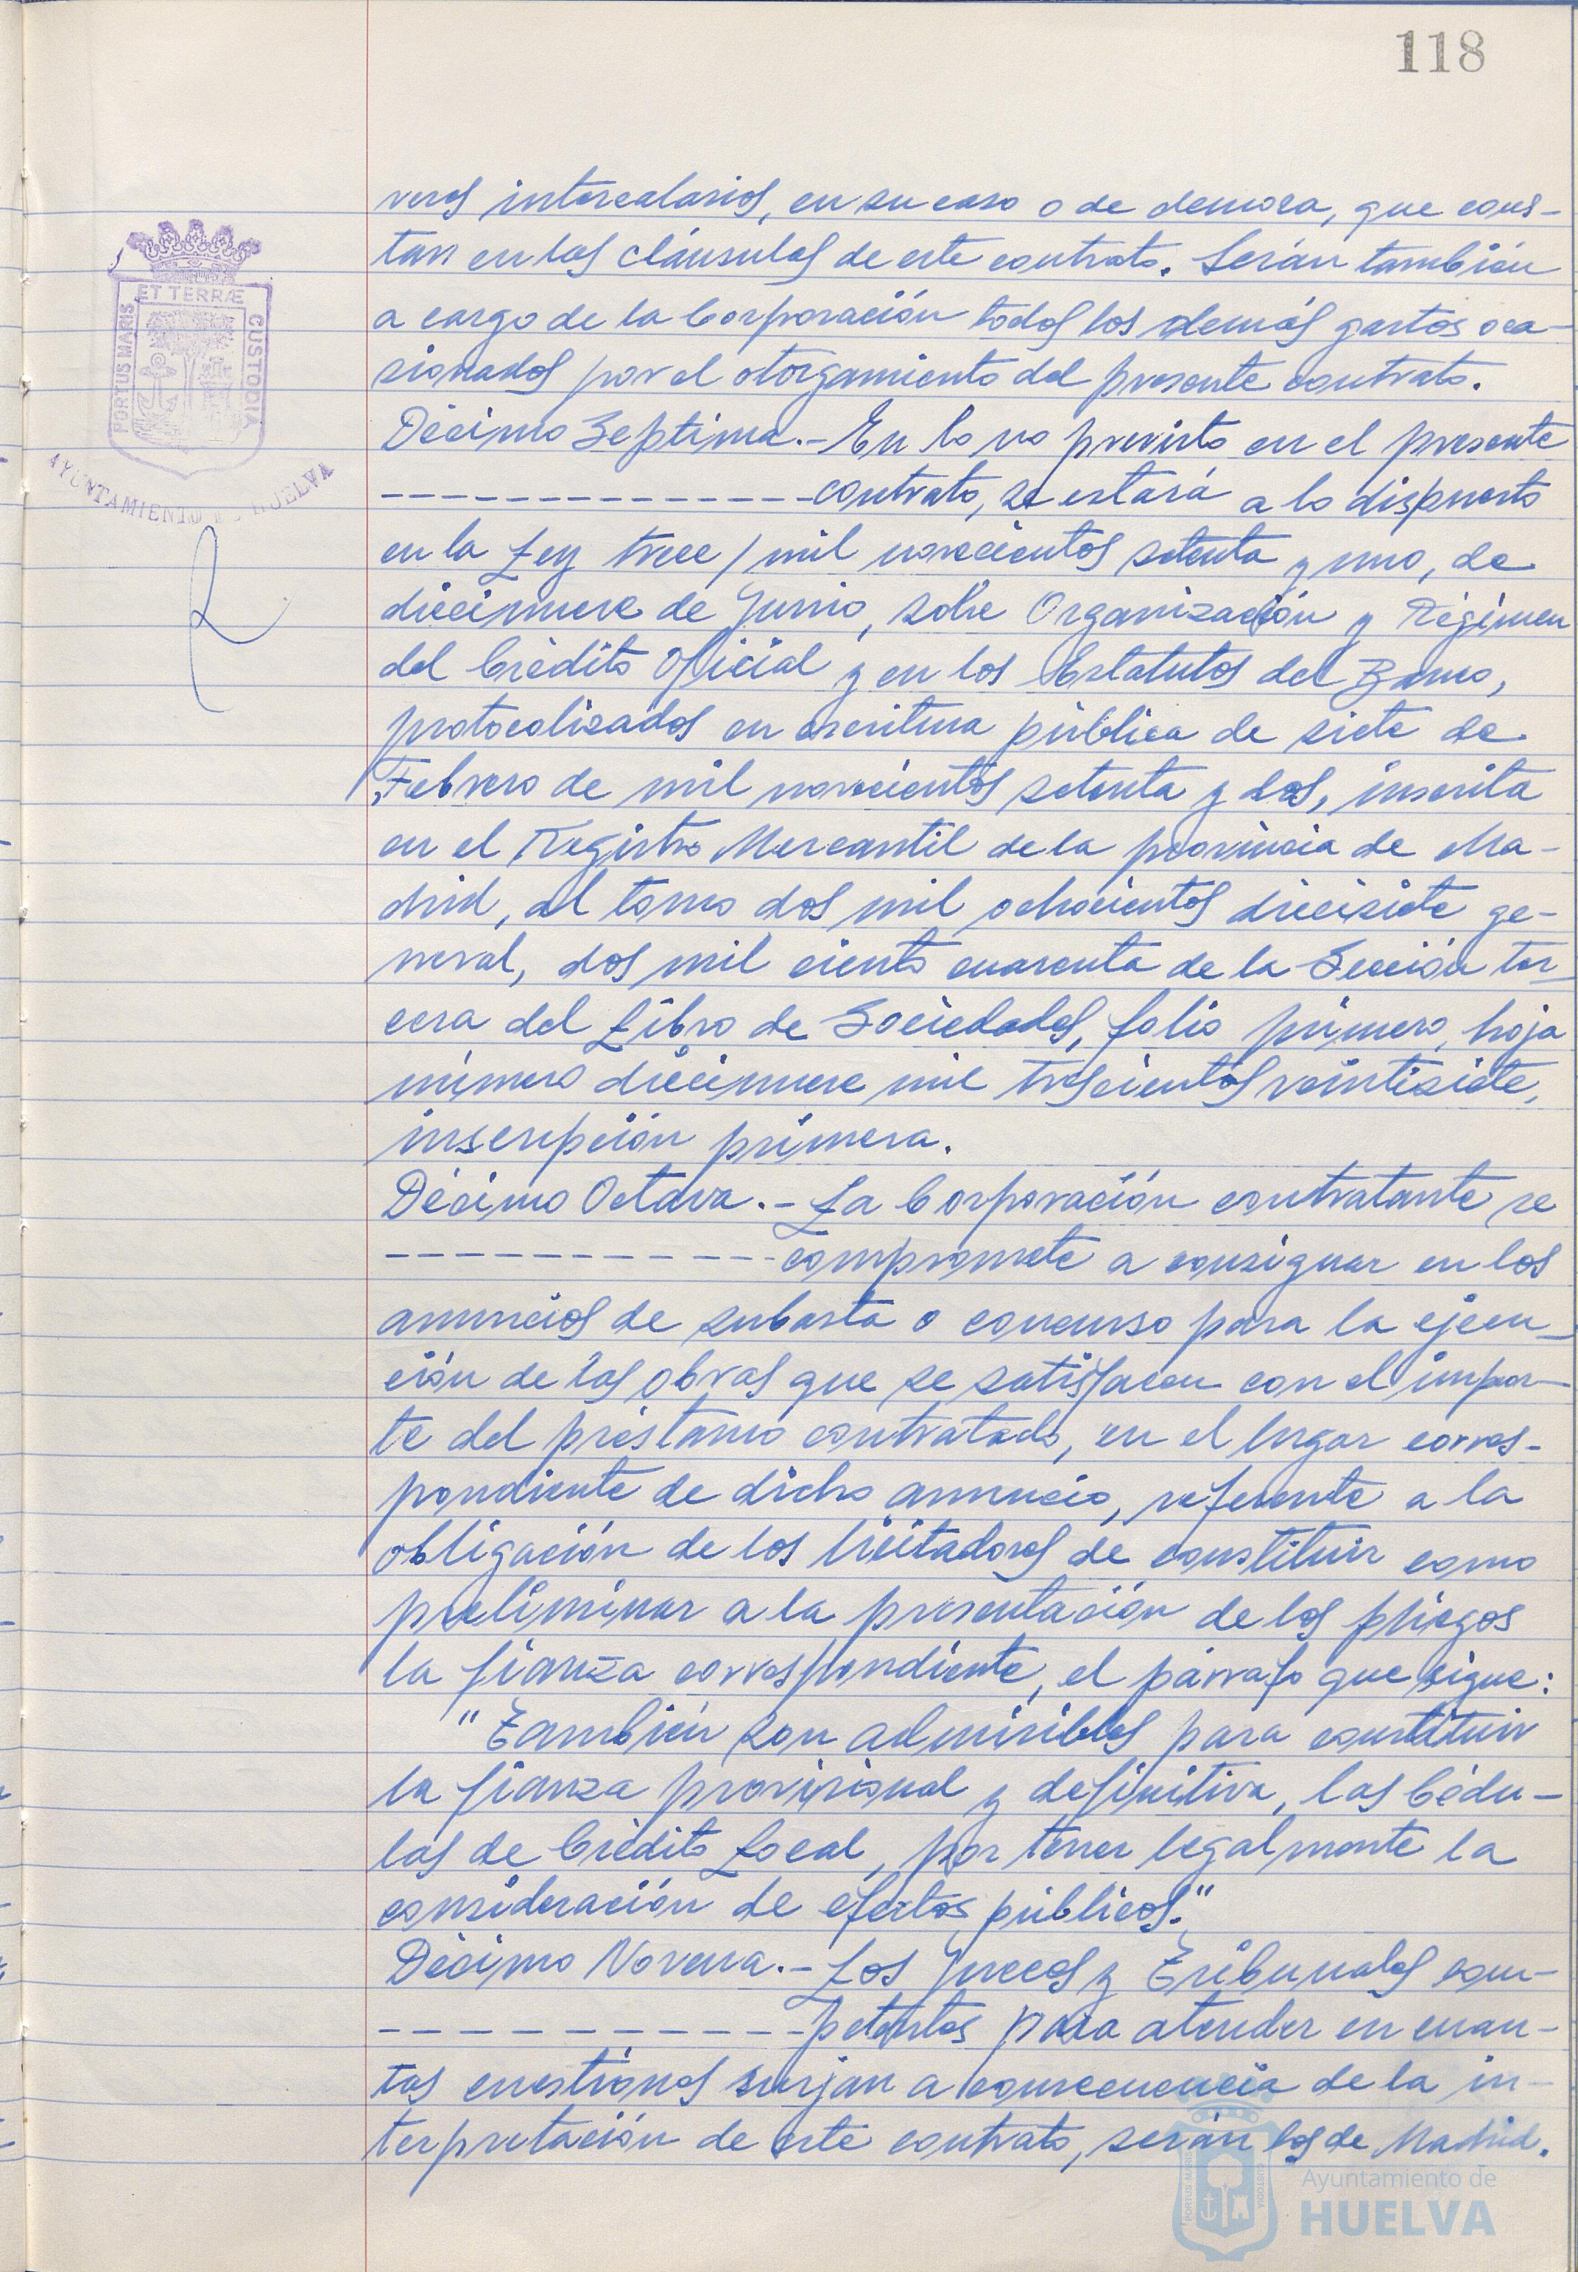 118
PORTUS MARIS
ET TERRÆ
CUSTODIA
AYUNTAMIENTO DE HUELVA
reses intercalarios, en su caso o de demora, que cons-
tan en las cláusulas de este contrato. Serán también
a cargo de la Corporación todos los demás gastos oca-
sionados por el otorgamiento del presente contrato.
Décimo Septima.- En lo no previsto en el presente
-------------- contrato, se estará a lo dispuesto
en la Ley trece/mil novecientos setenta y uno, de
diecinueve de Junio, sobre Organización y Régimen
del Crédito Oficial y en los Estatutos del Banco,
protocolizados en escritura pública de siete de
Febrero de mil novecientos setenta y dos, inscrita
en el Registro Mercantil de la provincia de Ma-
drid, al tomo dos mil ochocientos diecisiete ge-
neral, dos mil ciento cuarenta de la Sección ter-
cera del Libro de Sociedades, folio primero, hoja
número diecinueve mil trescientos veintisiete,
inscripción primera.
Décimo Octava.- La Corporación contratante se
------------- compromete a consignar en los
anuncios de subasta o concurso para la ejecu-
ción de las obras que se satisfacen con el impor-
te del préstamo contratado, en el lugar corres-
pondiente de dicho anuncio, referente a la
obligación de los licitadores de constituir como
preliminar a la presentación de los pliegos
la fianza correspondiente, el párrafo que sigue:
"También son admisibles para constituir
la fianza provisional y definitiva, las Cédu-
las de Crédito Local, por tener legalmente la
consideración de efectos públicos."
Décimo Novena.- Los Jueces y Tribunales com-
------------- petentes para atender en cuan-
tas cuestiones surjan a consecuencia de la in-
terpretación de este contrato, serán los de Madrid.
Ayuntamiento de
HUELVA